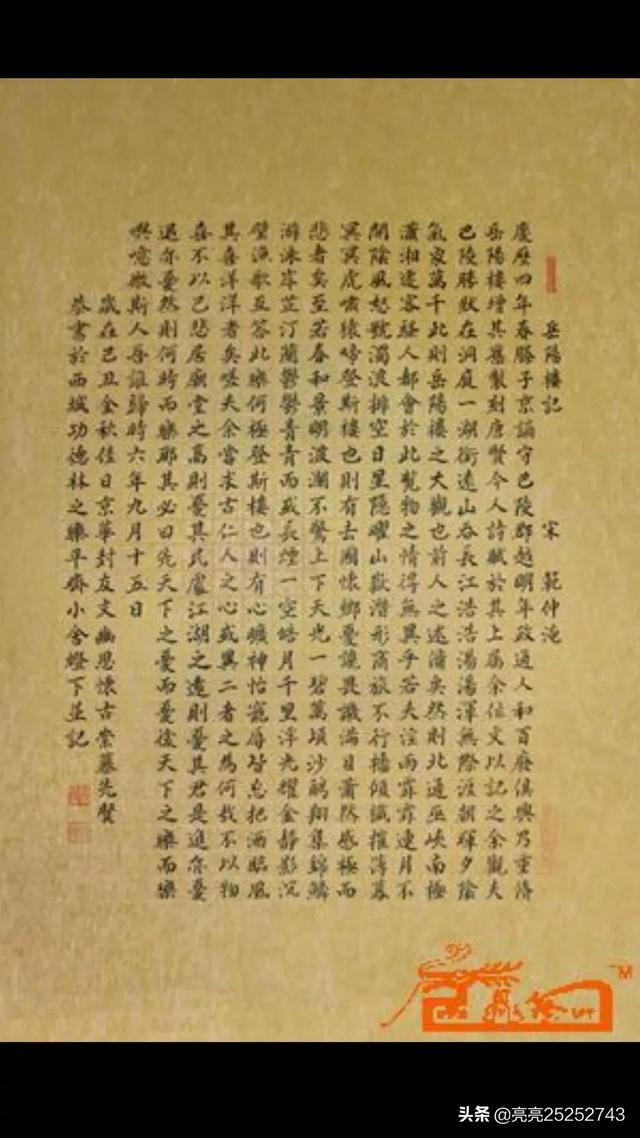 岳陽樓記 宋 範仲淹
慶歷四年春滕子京謫守巴陵郡越明年政通人和百廢俱興乃重脩
岳陽樓增其舊製刻唐賢今人詩賦於其上屬余作文以記之余觀夫
巴陵勝狀在洞庭一湖銜遠山吞長江浩浩湯湯渾無際涯朝暉夕陰
氣象萬千此則岳陽樓之大觀也前人之述備矣然則北通巫峽南極
瀟湘遷客騷人都會於此覽物之情得無異乎若夫淫雨霏霏連月不
開陰風怒號濁浪排空日星隱曜山嶽潛形商旅不行檣傾檝摧薄暮
冥冥虎嘯猿啼登斯樓也則有去國懷鄉憂讒畏譏滿目蕭然感極而
悲者矣至若春和景明波瀾不驚上下天光一碧萬頃沙鷗翔集錦鱗
游泳岸芷汀蘭鬱鬱青青而或長煙一空皓月千里浮光耀金靜影沉
璧漁歌互答此樂何極登斯樓也則有心曠神怡寵辱皆忘把酒臨風
其喜洋洋者矣嗟夫余嘗求古仁人之心或異二者之為何哉不以物
喜不以己悲居廟堂之高則憂其民處江湖之遠則憂其君是進亦憂
退亦憂然則何時而樂耶其必曰先天下之憂而憂後天下之樂而樂
歟噫微斯人吾誰歸時六年九月十五日
歲在己丑金秋佳日京華封友文幽思懷古崇慕先賢
恭書於西城功德林之樂平齋小舍燈下並記
TM
头条 @亮亮25252743